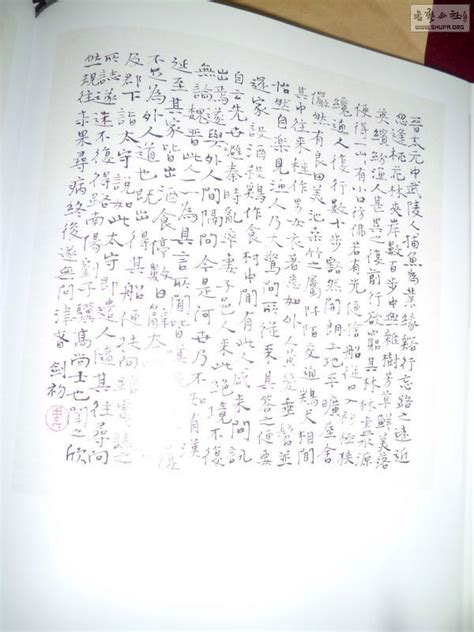 書法公社
WWW.SHUFA.ORG
晋太元中武陵人捕魚為業緣谿行忘路之遠近
忽逢桃花林夾岸數百步中無雜樹芳草鮮美落
英繽紛漁人甚異之復前行欲窮其林林盡水源
便得一山山有小口彷彿若有光便舍船從口入初極狹
纔通人復行數十步豁然開朗土地平曠屋舍
儼然有良田美池桑竹之屬阡陌交通鷄犬相聞
其中往來種作男女衣著悉如外人黃髮垂髫並
怡然自樂見漁人乃大驚問所從來具答之便要
還家設酒殺鷄作食村中聞有此人咸來問訊
自云先世避秦時亂率妻子邑人來此絕境不復
出焉遂與外人間隔問今是何世乃不知有漢
無論魏晋此人一一為具言所聞皆
延至其家皆出酒食停數日辭去
不足為外人道也既出得其船便扶向路處處誌之
及郡下詣太守說如此太守即遣人隨其往尋向
所誌遂迷不復得路南陽劉子驥高尚士也聞之欣
然規往未果尋病終後遂無問津者